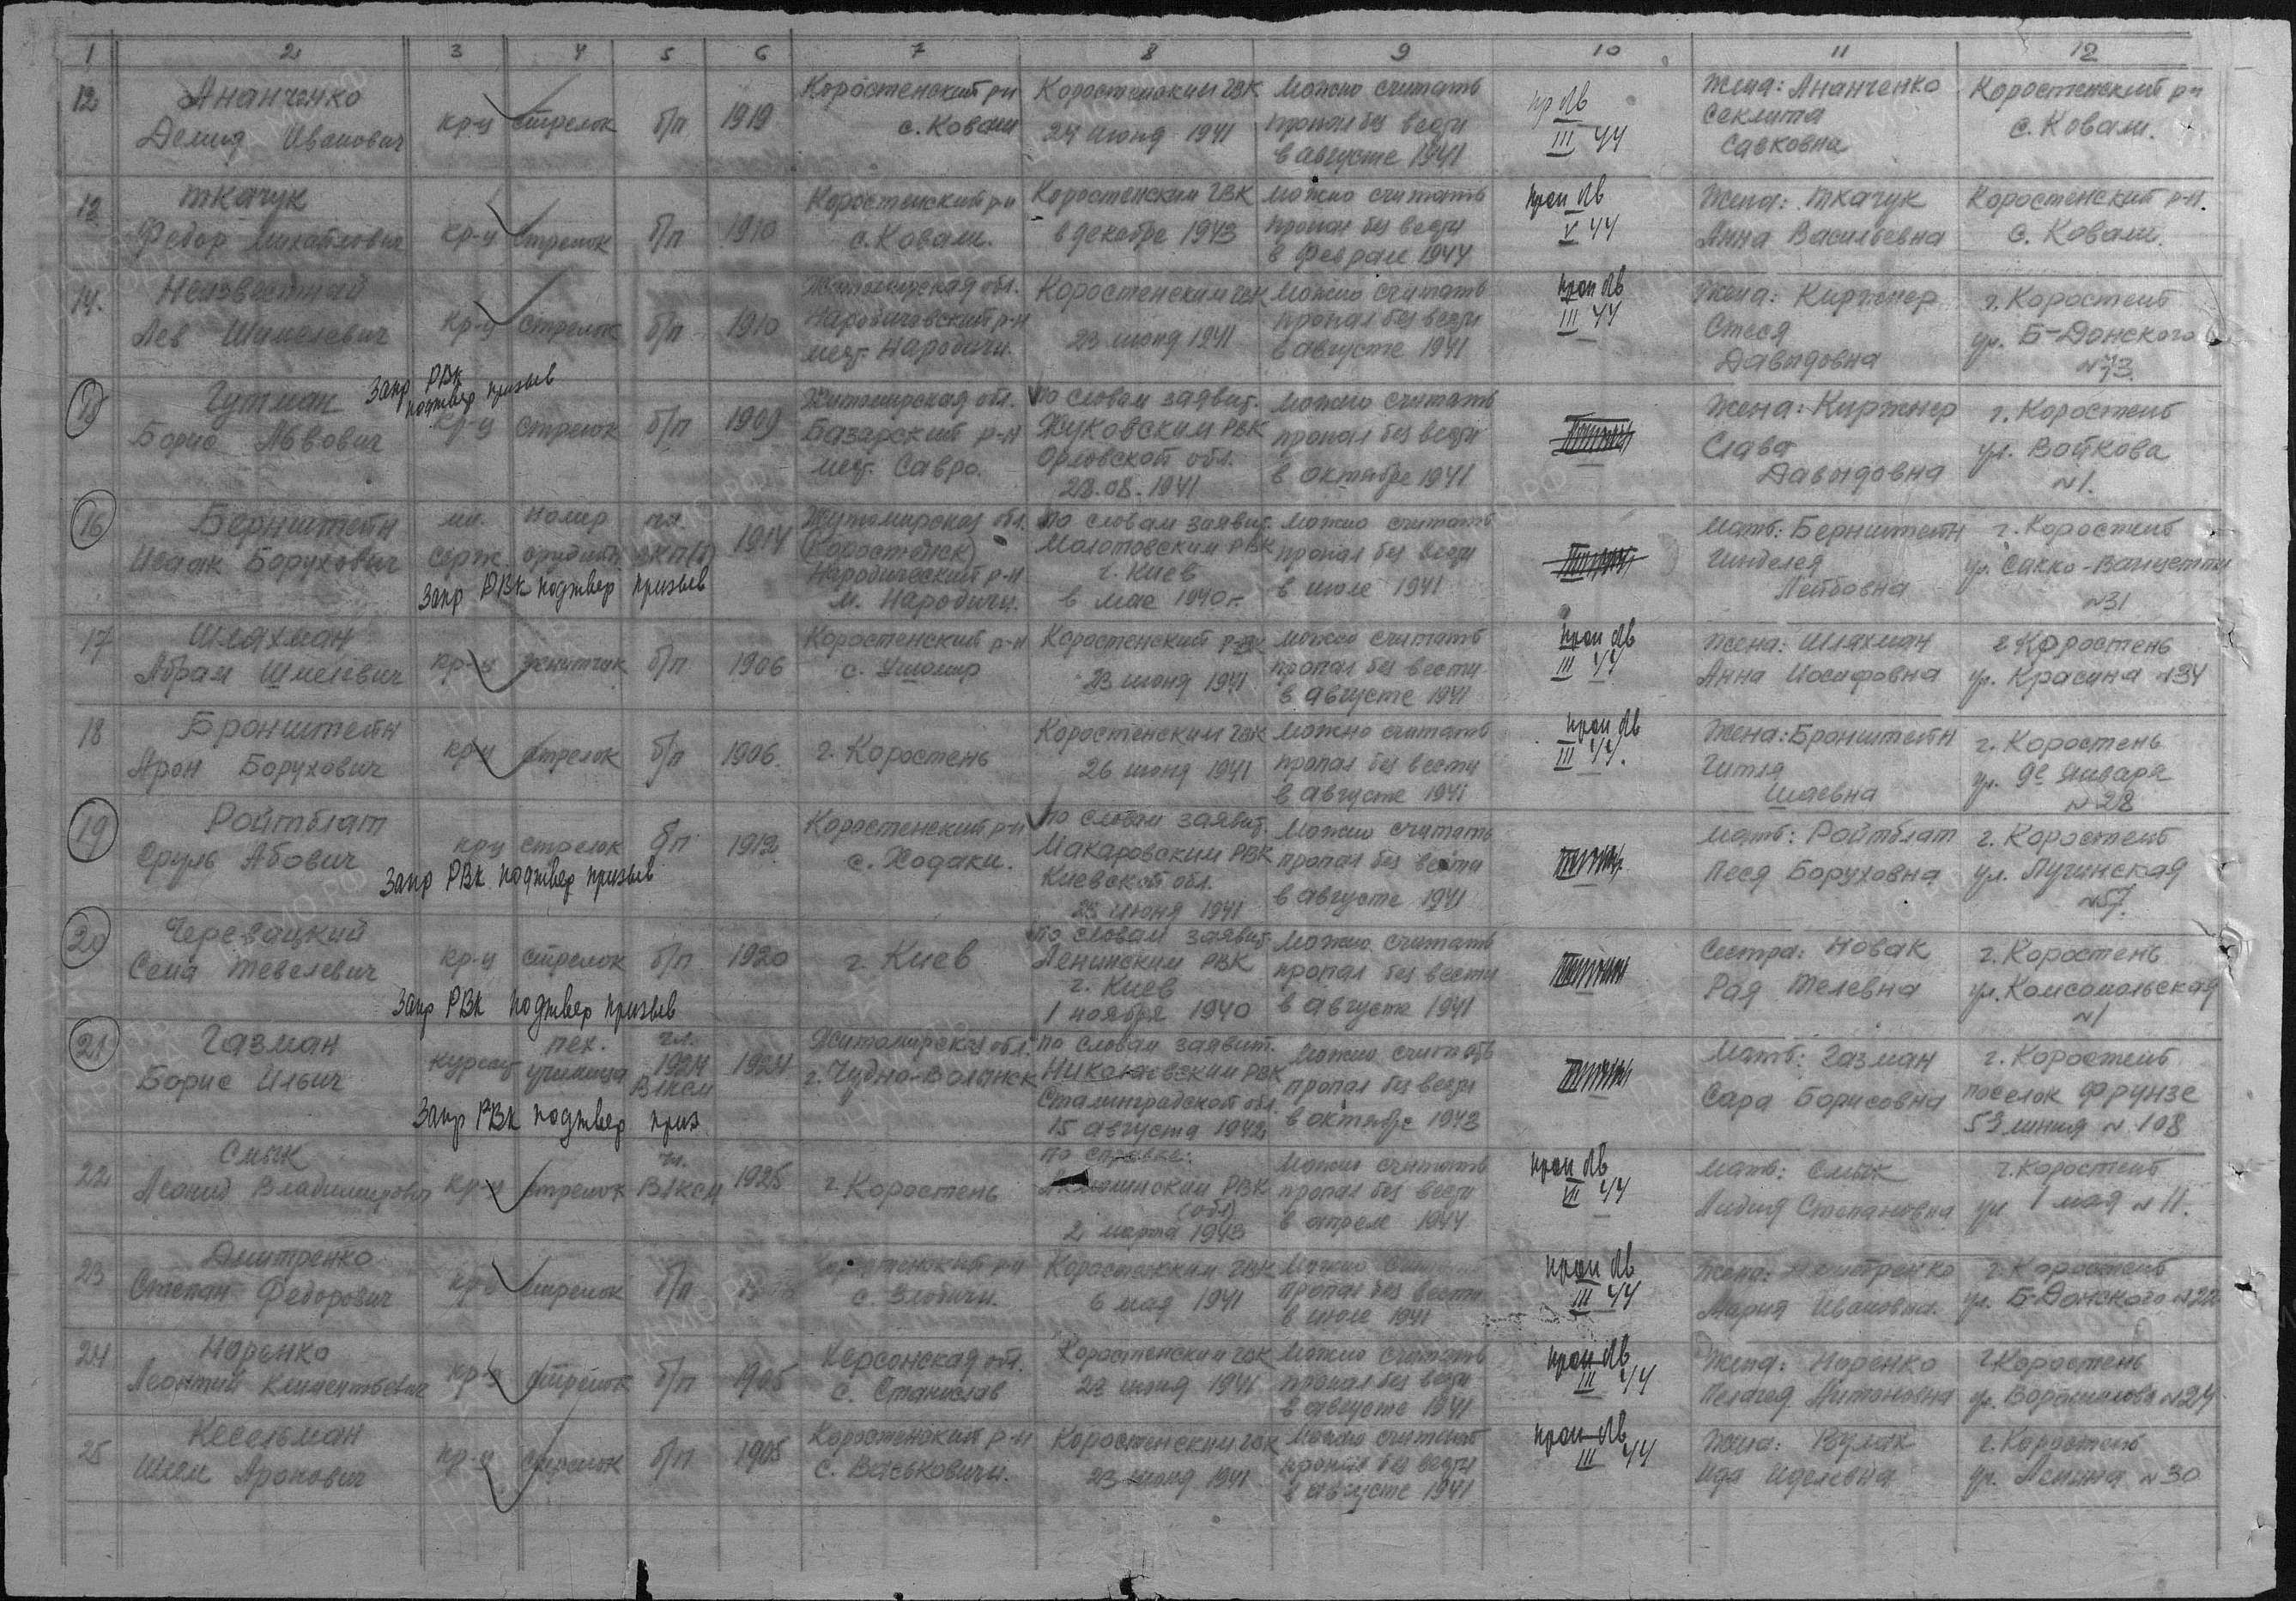 1 2 3 4 5 6 7 8 9 10 11 12
12 Ананченко Демид Иванович кр-ц стрелок б/п 1919 Коростенский р-н с. Коваши Коростенским ГВК 24 июня 1941 можно считать пропал без вести в августе 1941 пр ЛВ III 44 Жена: Ананченко Секлита Савковна Коростенский р-н с. Коваши.
13 Ткачук Федор Михайлович кр-ц стрелок б/п 1910 Коростенский р-н с. Коваши. Коростенским ГВК в декабре 1943 можно считать пропал без вести в феврале 1944 проп ЛВ V 44 Жена: Ткачук Анна Васильевна Коростенский р-н. с. Коваши.
14. Неизвестный Лев Шимелевич кр-ц стрелок б/п 1910 Житомирская обл. Народичский р-н мест. Народичи. Коростенским ГВК 23 июня 1941 можно считать пропал без вести в августе 1941 проп ЛВ III 44 Жена: Киржнер Стеся Давыдовна г. Коростень ул. Б-Донского №73.
15 Гутман Борис Львович Запр РВК подтвер призыв кр-ц стрелок б/п 1909 Житомирская обл. Базарский р-н мест. Савро. по словам заявит. Жуковским РВК Орловской обл. 28.08.1941 можно считать пропал без вести в октябре 1941 Жена: Киржнер Слава Давыдовна г. Коростень ул. Войкова №1.
16 Бернштейн Исаак Борухович мл. серж командир орудия чл. ВКП(б) 1914 Запр РВК подтвер призыв Житомирская обл. (Коростенск) Народический р-н м. Народичи. по словам заявит. Молотовским РВК г. Киев в мае 1940 г. можно считать пропал без вести в июле 1941 Мать: Бернштейн Гинделея Лейбовна г. Коростень ул. Сакко-Ванцетти №31
17 Шляхман Абрам Шмелевич кр-ц зенитчик б/п 1906 Коростенский р-н с. Ушомир Коростенский РВК 23 июня 1941 можно считать пропал без вести в августе 1941 проп ЛВ III 44 Жена: Шляхман Анна Иосифовна г. Коростень ул. Красина №34
18 Бронштейн Арон Борухович кр-ц стрелок б/п 1906. г. Коростень Коростенским ГВК 26 июня 1941 можно считать пропал без вести в августе 1941 проп ЛВ III 44. Жена: Бронштейн Гитля Шаевна г. Коростень ул. 9е Января №28
19 Ройтблат Сруль Абович кр-ц стрелок б/п 1912 Запр РВК подтвер призыв Коростенский р-н с. Ходаки. по словам заявит. Макаровским РВК Киевской обл. 23 июня 1941 можно считать пропал без вести в августе 1941 Мать: Ройтблат Песя Боруховна г. Коростень ул. Лугинская №57.
20 Черевацкий Сеча Тевелевич кр-ц стрелок б/п 1920 Запр РВК подтвер призыв г. Киев по словам заявит. Ленинским РВК г. Киев 1 ноября 1940 можно считать пропал без вести в августе 1941 Сестра: Новак Рая Телевна г. Коростень ул. Комсомольская №1
21 Газман Борис Ильич курсант пех. училища чл. 1924 ВЛКСМ 1924 Запр РВК подтвер приз Житомирская обл. г. Чудно-Волынск по словам заявит. Николаевским РВК Сталинградской обл. 15 августа 1942 можно считать пропал без вести в октябре 1943 Мать: Газман Сара Борисовна г. Коростень поселок Фрунзе 53 линия №108
22 Смык Леонид Владимирович кр-ц стрелок чл. ВЛКСМ 1925 г. Коростень по справке: РВК (обл) 2 марта 1943 можно считать пропал без вести в апреле 1944 проп ЛВ VII 44 Мать: Смык Лидия Степановна г. Коростень ул 1 мая №11.
23 Дмитренко Степан Федорович кр-ц стрелок б/п Коростенский р-н с. Злобичи. Коростенским ГВК 6 мая 1941 можно считать пропал без вести в июле 1941 проп ЛВ III 44 Жена: Дмитренко Мария Ивановна. г. Коростень ул. Б-Донского №22
24 Норенко Леонтий Климентьевич кр-ц стрелок б/п 1905 Херсонская обл. с. Станислав Коростенским ГВК 23 июня 1941 можно считать пропал без вести в августе 1941 проп ЛВ III 44 Жена: Норенко Пелагея Антоновна г. Коростень ул. Ворошилова №24
25 Кесельман Шлем Аронович кр-ц стрелок б/п 1905 Коростенский р-н с. Васьковичи. Коростенским ГВК 23 июня 1941 можно считать пропал без вести в августе 1941 проп ЛВ III 44 Жена: Кулик Ида Иделевна г. Коростень ул. Ленина №30